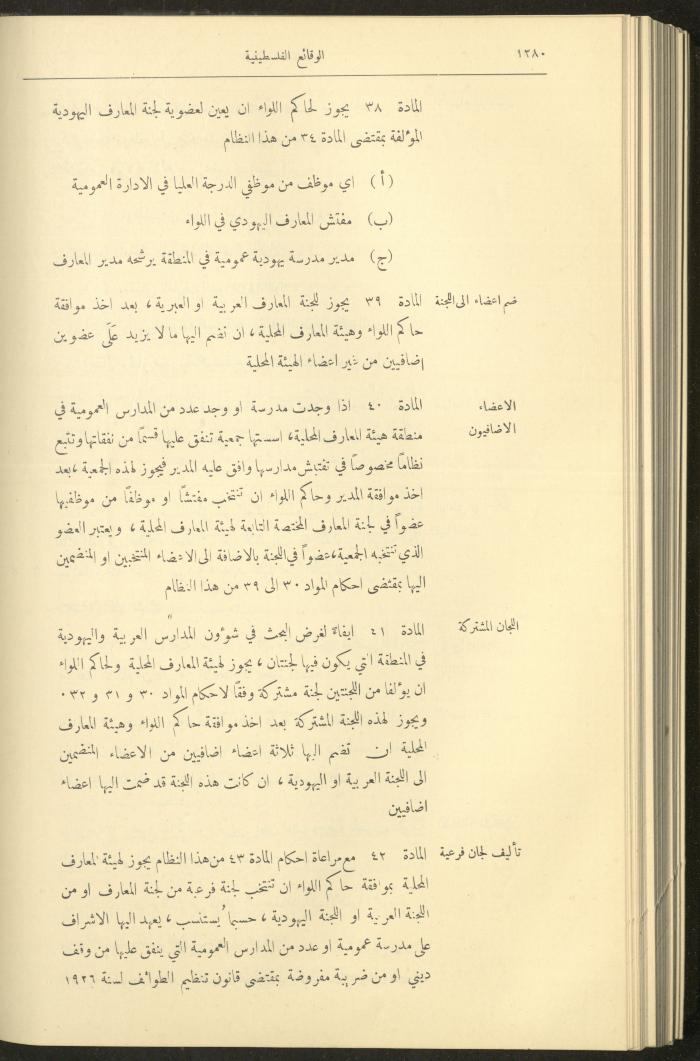 ١٢٨٠
الوقائع الفلسطينية
المادة ٣٨ يجوز لحاكم اللواء ان يعين لعضوية لجنة المعارف اليهودية
المؤلفة بمقتضى المادة ٣٤ من هذا النظام
(أ) اي موظف من موظفي الدرجة العليا في الادارة العمومية
(ب) مفتش المعارف اليهودي في اللواء
(ج) مدير مدرسة يهودية عمومية في المنطقة يرشحه مدير المعارف
ضم اعضاء الى اللجنة
المادة ٣٩ يجوز للجنة المعارف العربية او العبرية، بعد اخذ موافقة
حاكم اللواء وهيئة المعارف المحلية، ان تضم اليها ما لا يزيد على عضوين
إضافيين من غير اعضاء الهيئة المحلية
الاعضاء
الاضافيون
المادة ٤٠ اذا وجدت مدرسة او وجد عدد من المدارس العمومية في
منطقة هيئة المعارف المحلية، اسستها جمعية تنفق عليها قسمًا من نفقاتها وتتبع
نظامًا مخصوصًا في تفتيش مدارسها وافق عليه المدير فيجوز لهذه الجمعية، بعد
اخذ موافقة المدير وحاكم اللواء ان تنتخب مفتشًا او موظفًا من موظفيها
عضواً في لجنة المعارف المختصة التابعة لهيئة المعارف المحلية، ويعتبر العضو
الذي تنتخبه الجمعية، عضواً في اللجنة بالاضافة الى الاعضاء المنتخبين او المنضمين
اليها بمقتضى احكام المواد ٣٠ الى ٣٩ من هذا النظام
اللجان المشتركة
المادة ٤١ ايفاءً لغرض البحث في شوءون المدارس العربية واليهودية
في المنطقة التي يكون فيها لجنتان، يجوز لهيئة المعارف المحلية ولحاكم اللواء
ان يؤلفا من اللجنتين لجنة مشتركة وفقًا لاحكام المواد ٣٠ و ٣١ و ٣٢.
ويجوز لهذه اللجنة المشتركة بعد اخذ موافقة حاكم اللواء وهيئة المعارف
المحلية ان تضم اليها ثلاثة اعضاء اضافيين من الاعضاء المنضمين
الى اللجنة العربية او اليهودية، ان كانت هذه اللجنة قد ضمت اليها اعضاء
اضافيين
تأليف لجان فرعية
المادة ٤٢ مع مراعاة احكام المادة ٤٣ من هذا النظام يجوز لهيئة المعارف
المحلية بموافقة حاكم اللواء ان تنتخب لجنة فرعية من لجنة المعارف او من
اللجنة العربية او اللجنة اليهودية، حسبما يُستنسب، يعهد اليها الاشراف
على مدرسة عمومية او عدد من المدارس العمومية التي ينفق عليها من وقف
ديني او من ضريبة مفروضة بمقتضى قانون تنظيم الطوائف لسنة ١٩٢٦